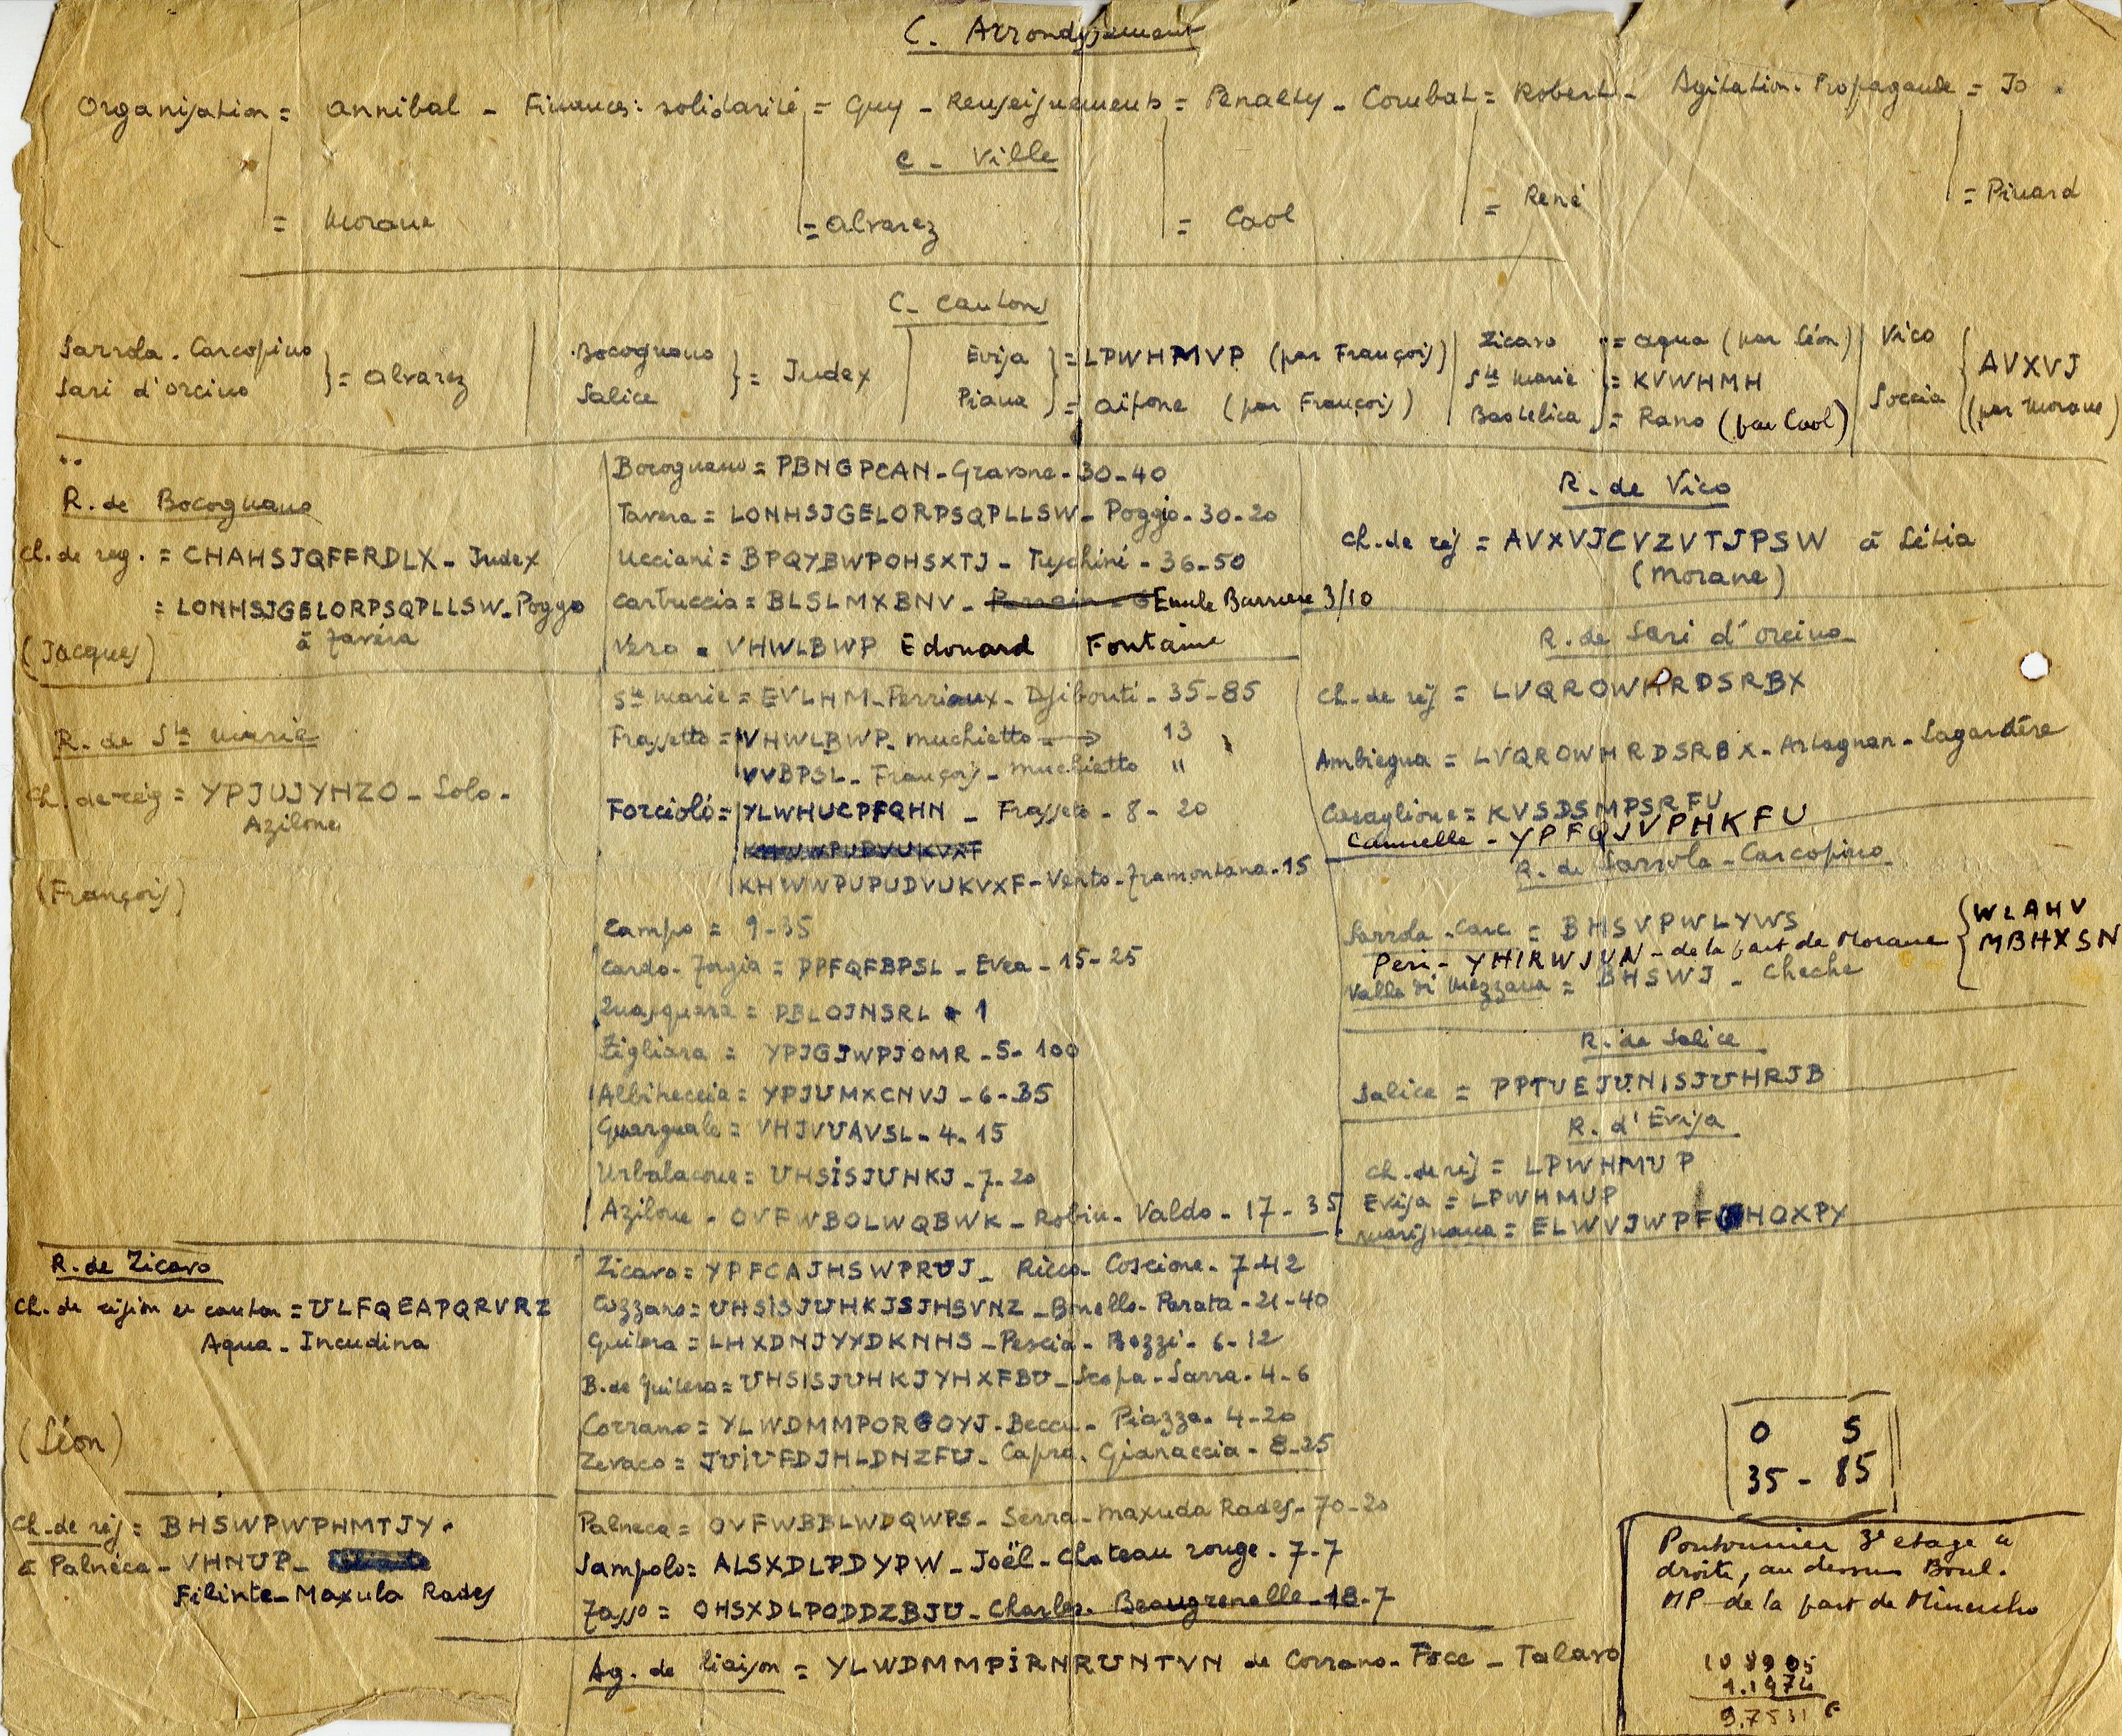 C. Arrondissement
Organisation = Annibal - Finances: solidarité = Guy - Renseignements = Penalty - Combat = Robert - Agitation. Propagande = Jo
C - Ville
= Morane = Alvarez = Caol = René = Pinard
C - Cantons
Sarrola. Carcopino
Sari d'Orcino } = Alvarez
Bocognano
Salice } = Judex
Evisa } = LPWHMVP (par François)
Piana = Aïfone (par François)
Zicavo = Aqua (par Léon)
Ste Marie = KVWHMH
Bastelica = Rano (par Caol)
Vico
Soccia { AVXVJ
(par Morane)
R. de Bocognano
Ch. de reg. = CHAHSJQFFRDLX - Judex
= LONHSJGELORPSQPLLSW - Poggo
à Tavéra
(Jacques)
Bocognano = PBNGPCAN - Gravone - 30-40
Tavera = LONHSJGELORPSQPLLSW - Poggio - 30-20
Ucciani = BPQYBWPOHSXTJ - Tuschini - 36-50
Cartruccia = BLSLMXBNV - Emile Barriere 3/10
Vero = VHWLBWP Edouard Fontaine
R. de Vico
Ch. de rég = AVXVJCVZVTJPSW à Létia
(Morane)
R. de Sari d'Orcino
Ch. de rég = LVQROWHRDSRBX
Ambiegna = LVQROWHRDSRBX - Artagnan - Lagardère
Casaglione = KVSDSMPSRFU
Cannelle - YPFQJVPHKFU
R. de Ste Marie
Ch. de rég = YPJUJYHZO - Solo -
Azilone
(François)
Ste Marie = EVLHM - Perriaux - Djibouti - 35-85
Frassetto = VHWLBWP. Muchietto → 13
VVBPSL - François - Muchietto "
Forciolo = YLWHUCPFQHN - Frasseto - 8 - 20
KHWWPUPUDVUKVXF - Vento - Tramontana - 15
Campo = 9-35
Cardo-Torgia = DPFQFBPSL - Evea - 15-25
Quasquara = PBLOJNSRL - 1
Zigliara = YPJGJWPJOMR - 5 - 100
Albitreccia = YPJUMXCNVJ - 6 - 35
Guarguale = VHJVUAVSL - 4 - 15
Urbalacone = UHSISJUHKJ - 7-20
Azilone - OVFWBOLWQBWK - Robin - Valdo - 17 - 35
R. de Sarrola - Carcopino
Sarrola-Carc = BHSVPWLYWS
Peri - YHIRWJUN - de la part de Morane { WLAHV
MBHXSN
Valle di Mezzana = BHSWJ - Cheche
R. de Salice
Salice = PPTUEJUNISJUHRJB
R. d'Evisa
Ch. de rég = LPWHMUP
Evisa = LPWHMUP
Marignana = ELWVJWPF HOXPY
R. de Zicavo
Ch. de région et canton = ULFQEAPQRVRZ
Aqua - Incudina
(Léon)
Zicavo = YPFCAJHSWPRUJ - Ricco Coscione - 7-42
Cozzano = UHSISJUHKJSJHSVNZ - Bonello - Parata - 21-40
Guitera = LHXDNJYXDKNHS - Pescia - Bozzi - 6-12
B. de Guitera = UHSISJUHKJYHXFBU - Scopa - Sarra - 4-6
Corrano = YLWDMMPORGOYJ - Beccu - Piazza - 4-20
Zevaco = JUIUFDJHLDNZFU - Capra. Gianaccia - 8-25
Ch. de rég = BHSWPWPHMTJY -
à Palnéca - VHNUP -
Filinte - Maxula Rades
Palneca = OVFWBBLWDQWPS - Serra - Maxuda Rades - 70-20
Sampolo = ALSXDLPDYPW - Joël - Chateau rouge - 7-7
Tasso = OHSXDLPODDZBJU - Charles. Beaugrenelle - 18-7
Ag. de liaison = YLWDMMPIRNRUNTVN de Corrano - Foce - Talavo
0 5
35 - 85
Pontonnier 3e etage à
droite, au dessus Boul.
MP de la part de Minucho
108905
1.1974
9.7531